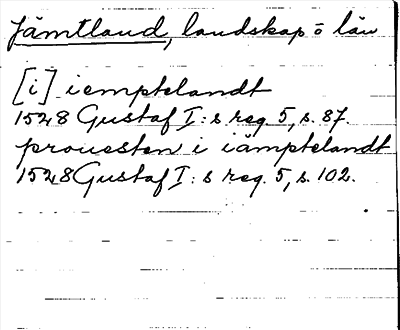 Jämtland, landskap o län
[i] iemptelandt
1528 Gustaf I:s reg. 5, s. 87.
prouesten i iämptelandt
1528 Gustaf I:s reg. 5, s. 102.